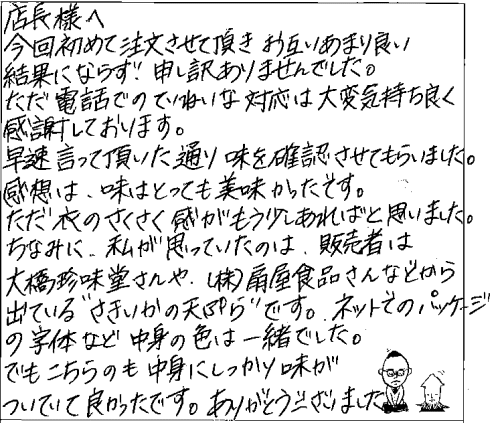 店長様へ
今回初めて注文させて頂きお互いあまり良い
結果にならず！申し訳ありませんでした。
ただ電話でのていねいな対応は大変気持ち良く
感謝しております。
早速言って頂いた通り味を確認させてもらいました。
感想は、味はとっても美味かったです。
ただ衣のさくさく感がもう少しあればと思いました。
ちなみに、私が思っていたのは、販売者は
大橋珍味堂さんや、(株)扇屋食品さんなどから
出ている"さきいかの天ぷら"です。ネットでのパッケージ
の字体など中身の色は一緒でした。
でもこちらのも中身にしっかり味が
ついていて良かったです。ありがとうございました